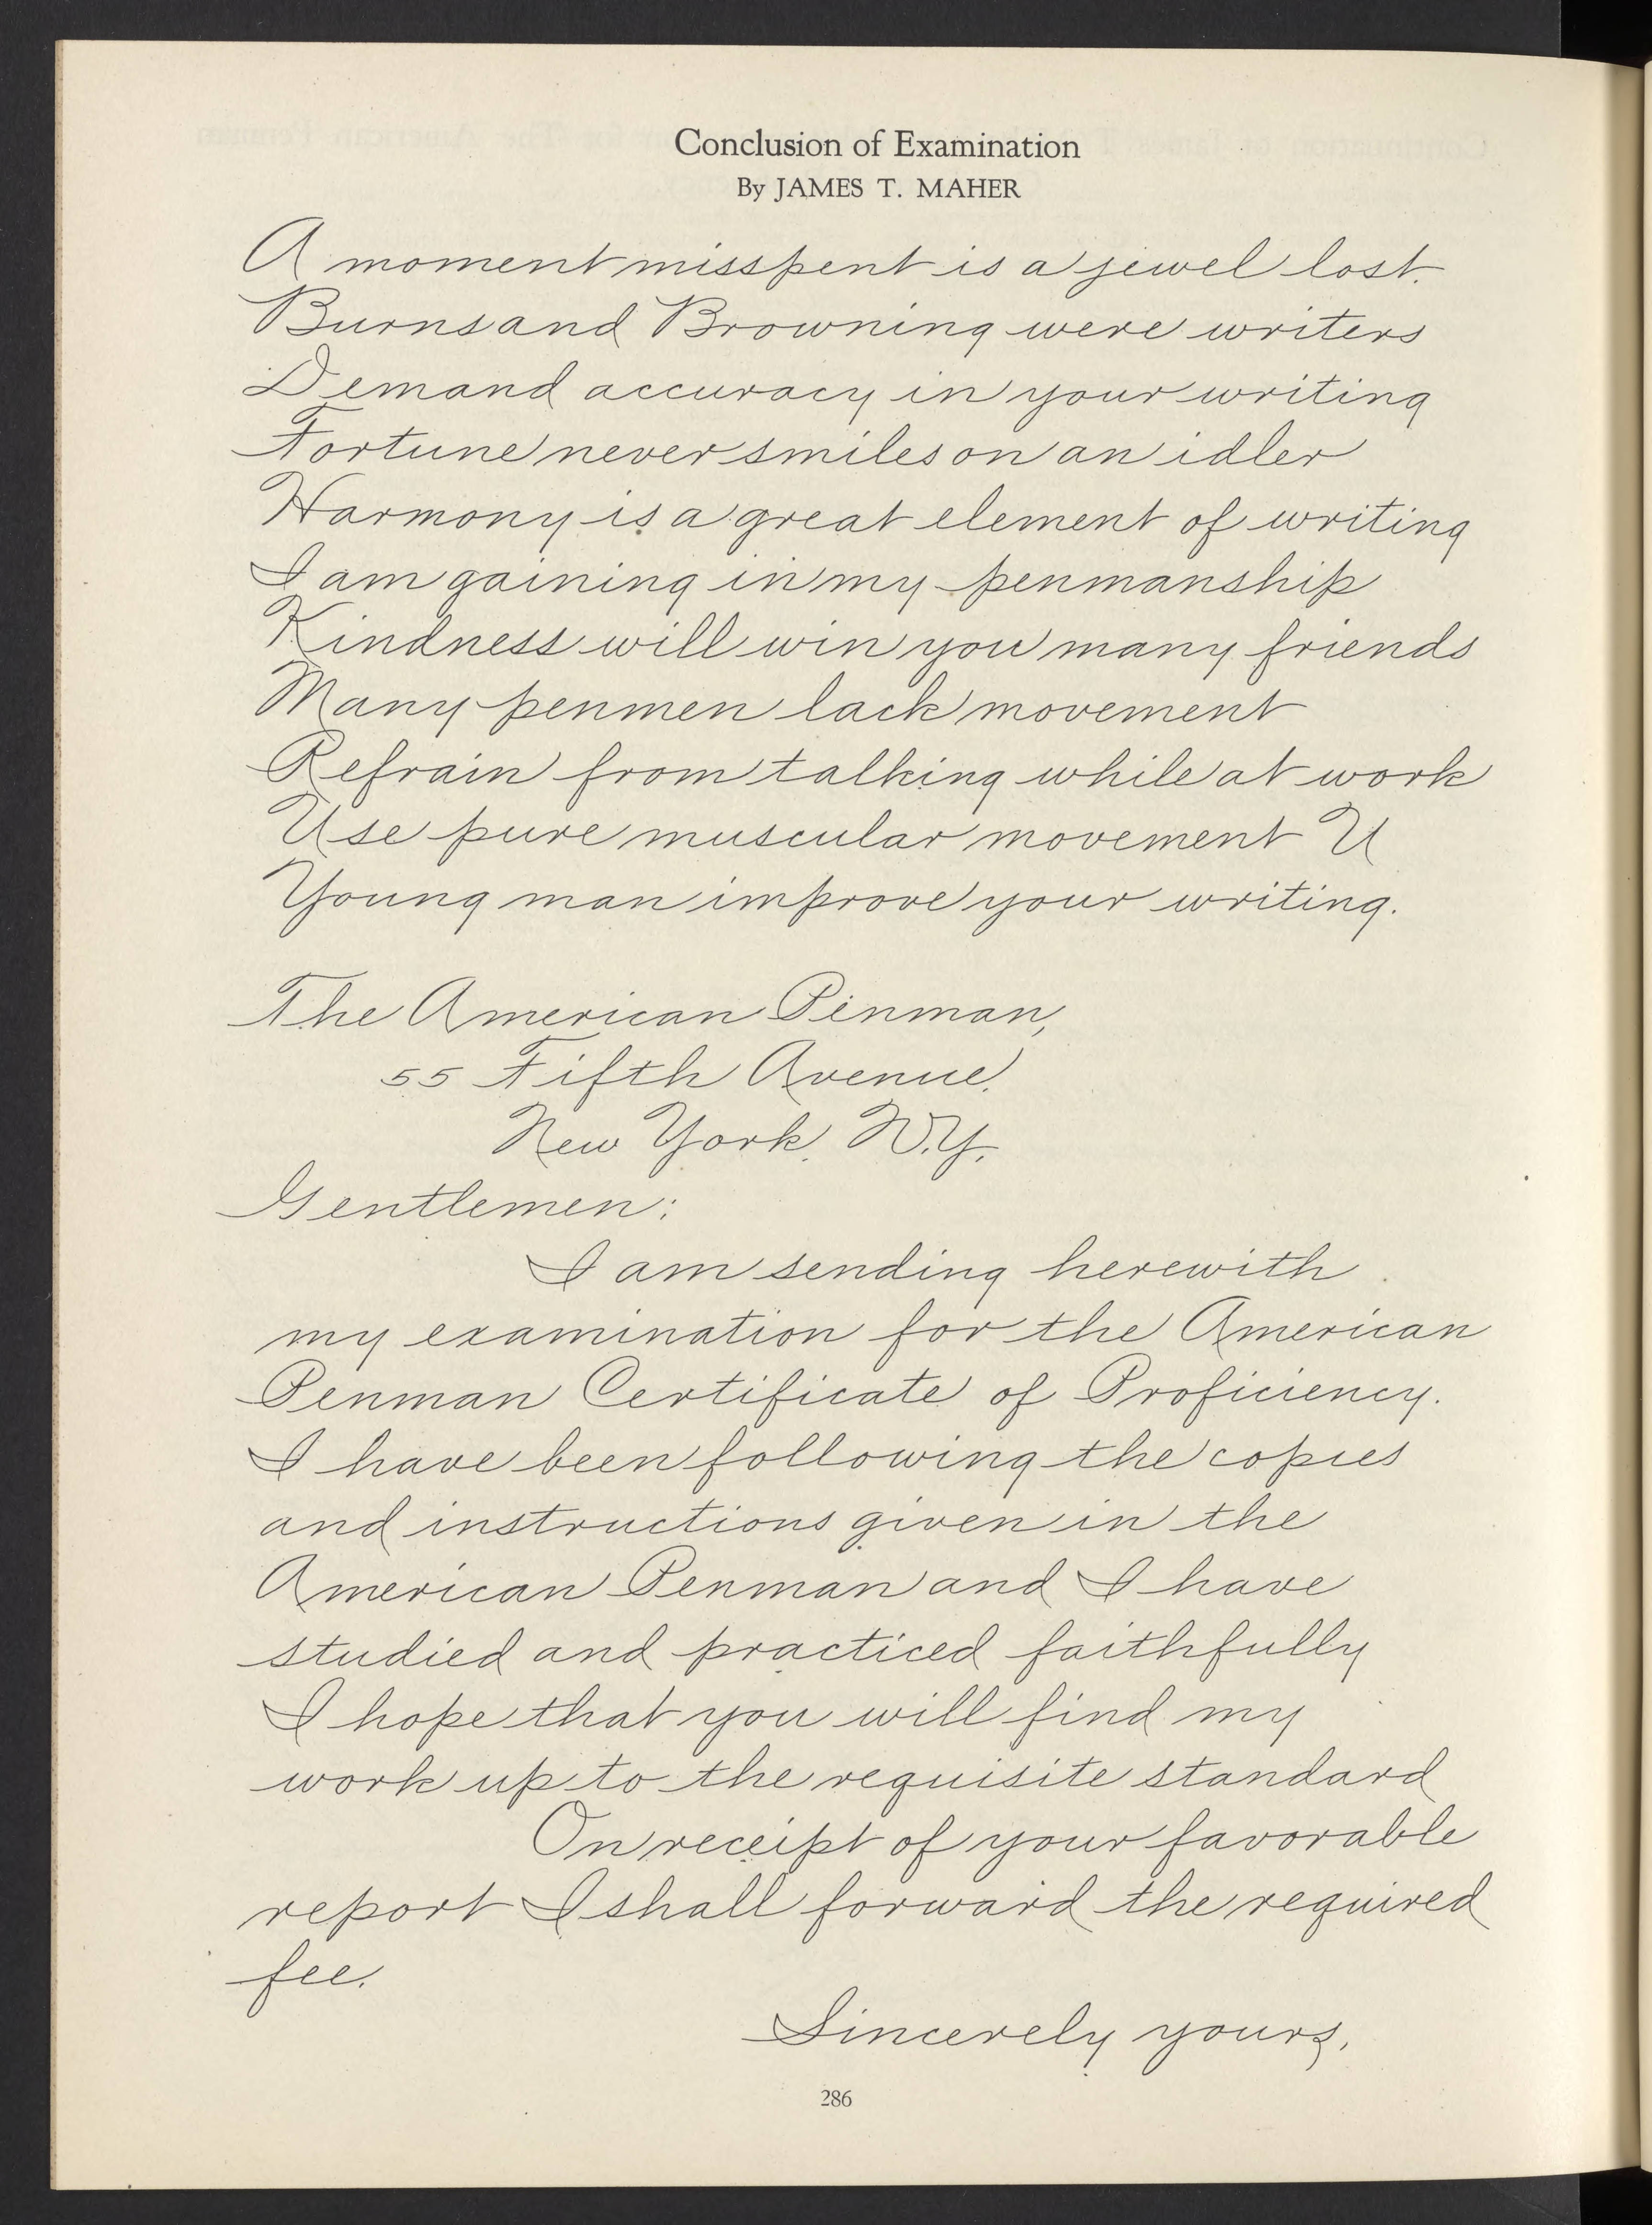 Conclusion of Examination
By JAMES T. MAHER
A moment misspent is a jewel lost.
Burns and Browning were writers
Demand accuracy in your writing
Fortune never smiles on an idler
Harmony is a great element of writing
I am gaining in my penmanship
Kindness will win you many friends
Many penmen lack movement
Refrain from talking while at work
Use pure muscular movement U
Young man improve your writing.
The American Penman,
55 Fifth Avenue,
New York, N.Y.
Gentlemen:
I am sending herewith
my examination for the American
Penman Certificate of Proficiency.
I have been following the copies
and instructions given in the
American Penman and I have
studied and practiced faithfully
I hope that you will find my
work up to the requisite standard
On receipt of your favorable
report I shall forward the required
fee.
Sincerely yours,
286